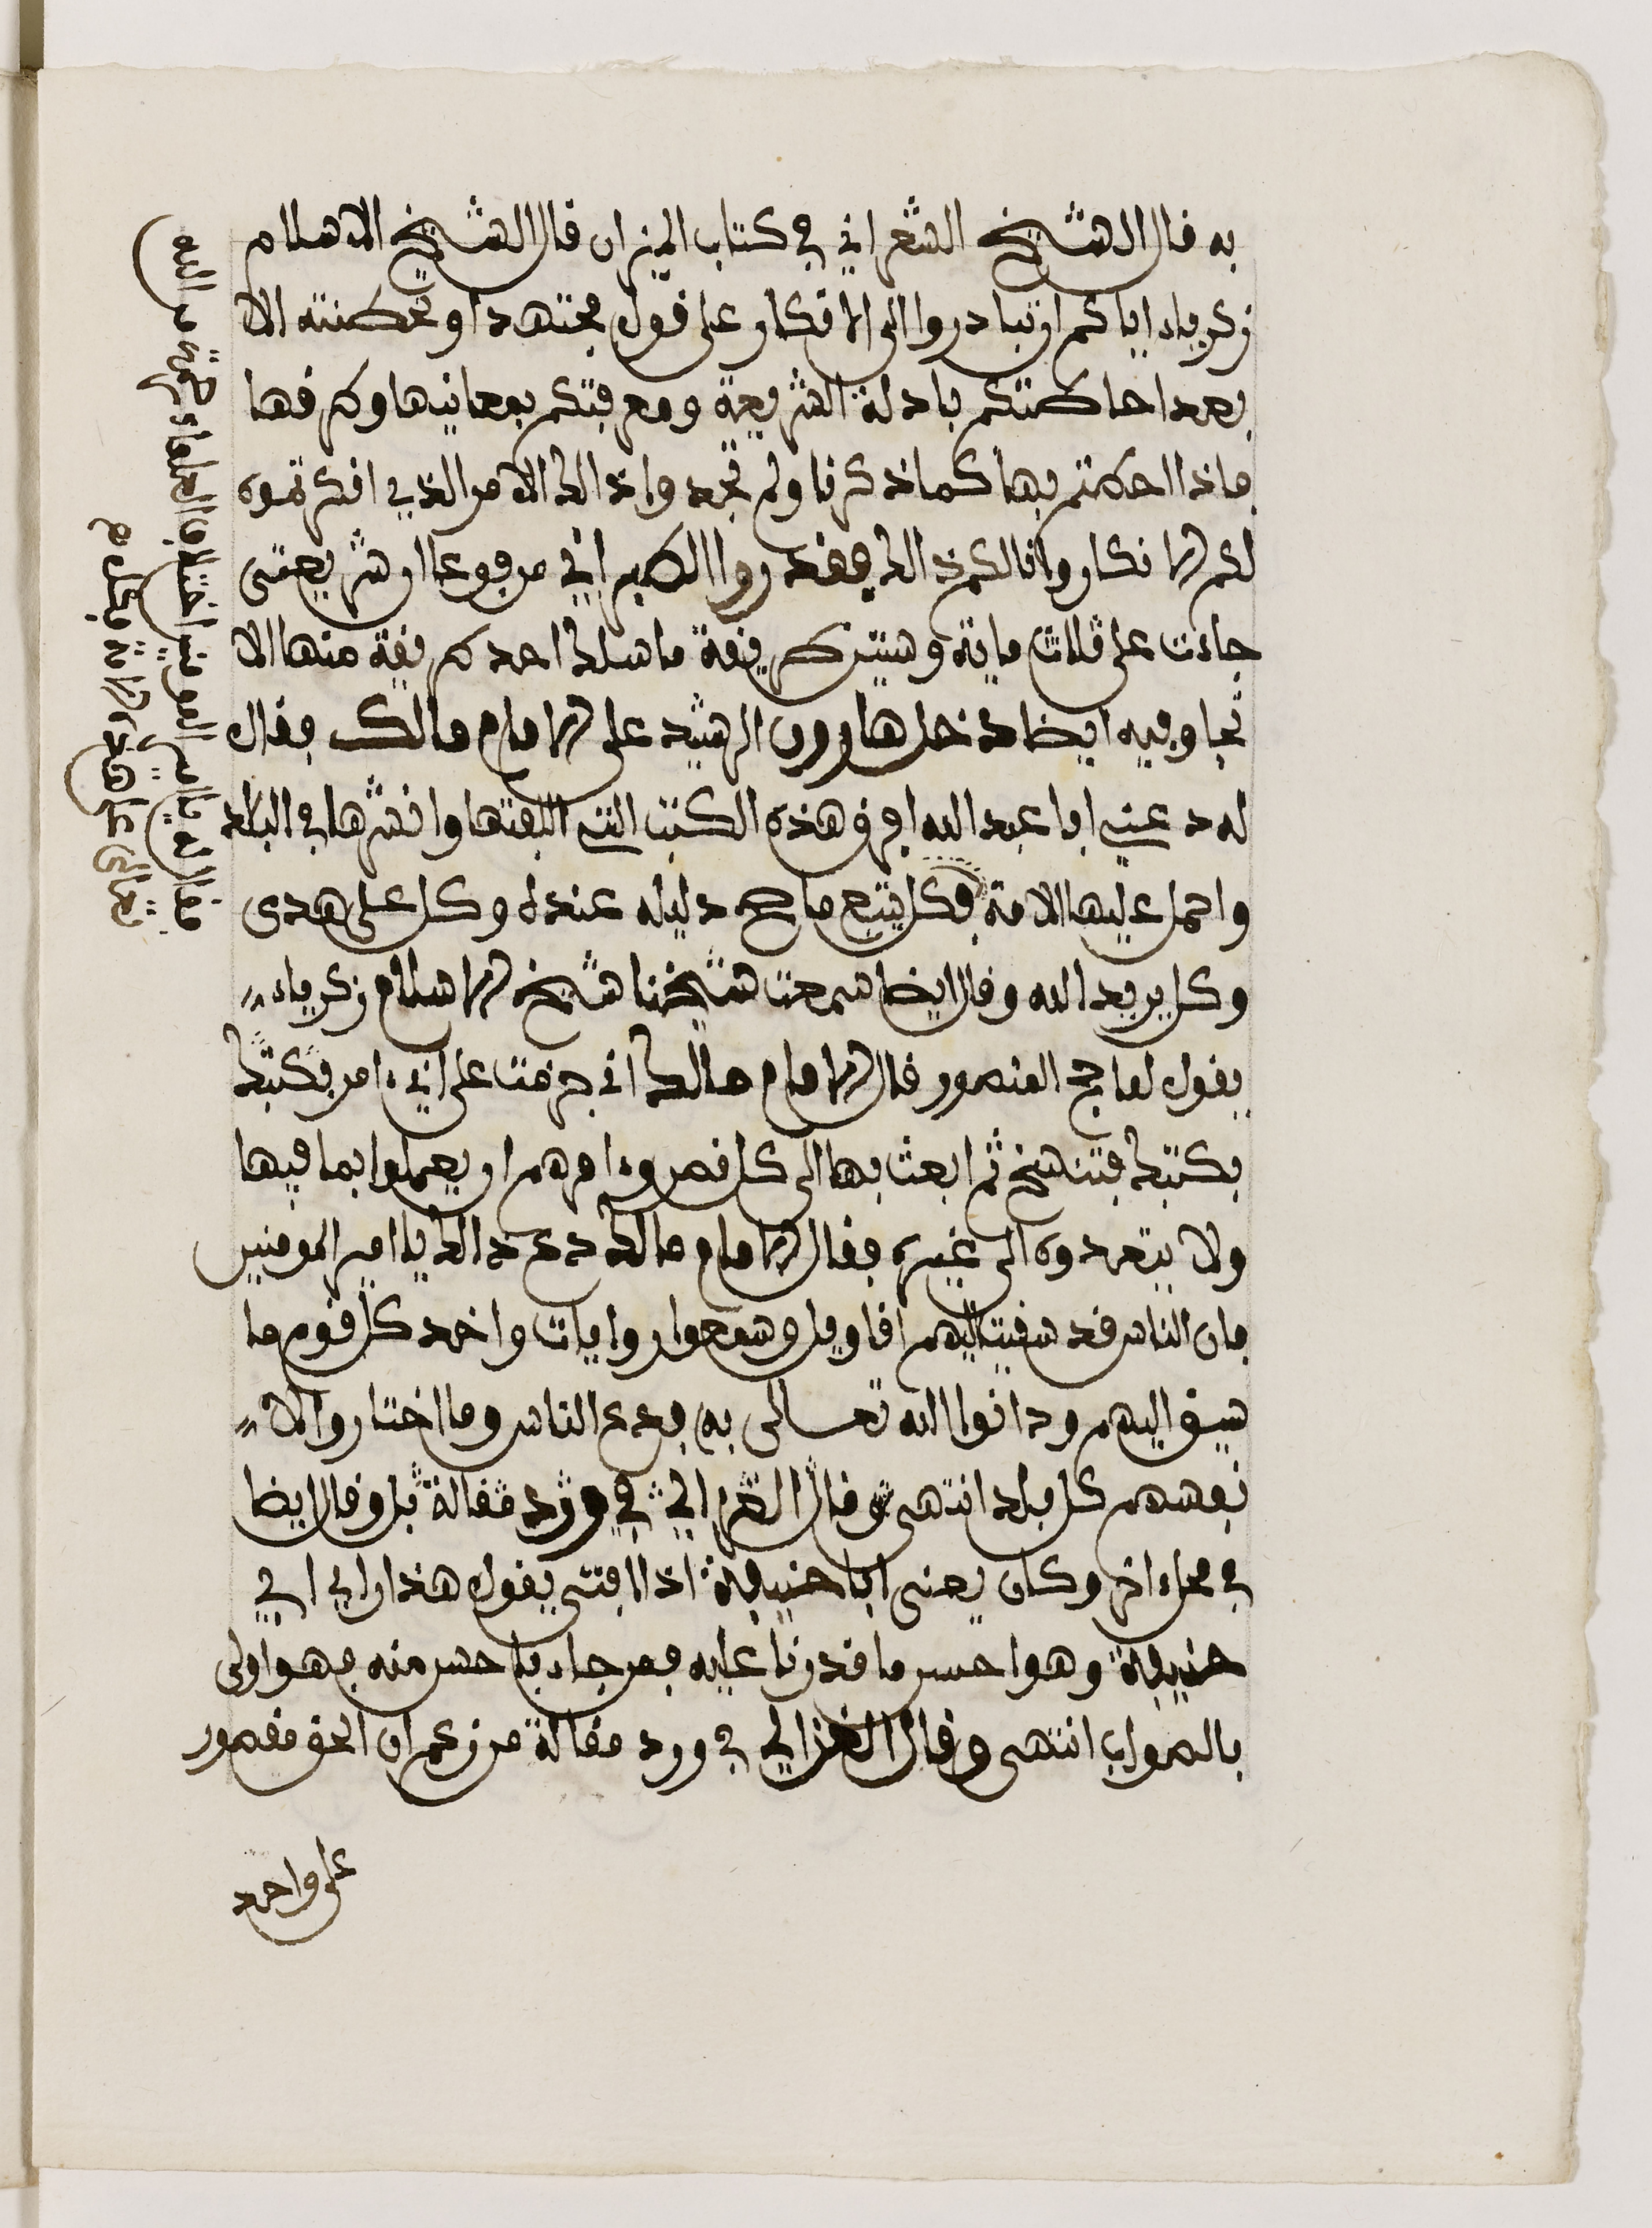 به قال الشيخ الشعراني في كتاب الميزان قال الشيخ الاسلام
زكرياء اياكم ان تبادروا الى الانكار على قول مجتهد او تخطئته الا
بعد احاطتكم بادلة الشريعة ومعرفتكم بمعانيها وطرفها
فاذا احطتم بها كما ذكرنا ولم تجدوا ذالك الامر الذي انكرتموه
لكم الانكار وانا لكم ذالك فقد روا الطبراني مرفوعا ان شريعتى
جاءت على ثلاث ماية وستين طريقة ما سلك احد طريقة منها الا
نجا وفيه ايضا دخل هارون الرشيد على الامام مالك فقال
له دعني ابا عبد الله افرق هذه الكتب التي الفتها وانشرها في البلاد
واحمل عليها الامة فكل يتبع ما صح دليله عنده وكل على هدى
وكل يريد الله وقال ايضا سمعت شيخنا شيخ الاسلام زكرياء
يقول لما حج المنصور قال الامام مالك اني عزمت على اني ءامر بكتبك
بكتبك فتنسخ ثم ابعث بها الى كل مصر وءامرهم ان يعملوا بما فيها
ولا يتعدوه الى غيره فقال الامام مالك دع ذالك يا امير المومنين
فان الناس قد سبقت اليهم اقاويل وسمعوا روايات واخذ كل قوم ما
سبق اليهم ودانوا الله تعالى به فدع الناس وما اختاروا لا
نفسهم كل بلد انتهى وقال الغزالي في ورد مقالة بل وقال ايضا
في محل ءاخر وكان يعنى ابا حنيفة اذا افتى يقول هذا راي ابي
حنيفة وهو احسن ما قدرنا عليه فمن جاء باحسن منه فهو اولى
بالصواب انتهى وقال الغزالي في ورد مقالة من زعم ان الحق مقصور
على واحد
فقال له يا امير المومنين اختلاف العلماء رحمة من الله
تعالى على هذه الامة فكل